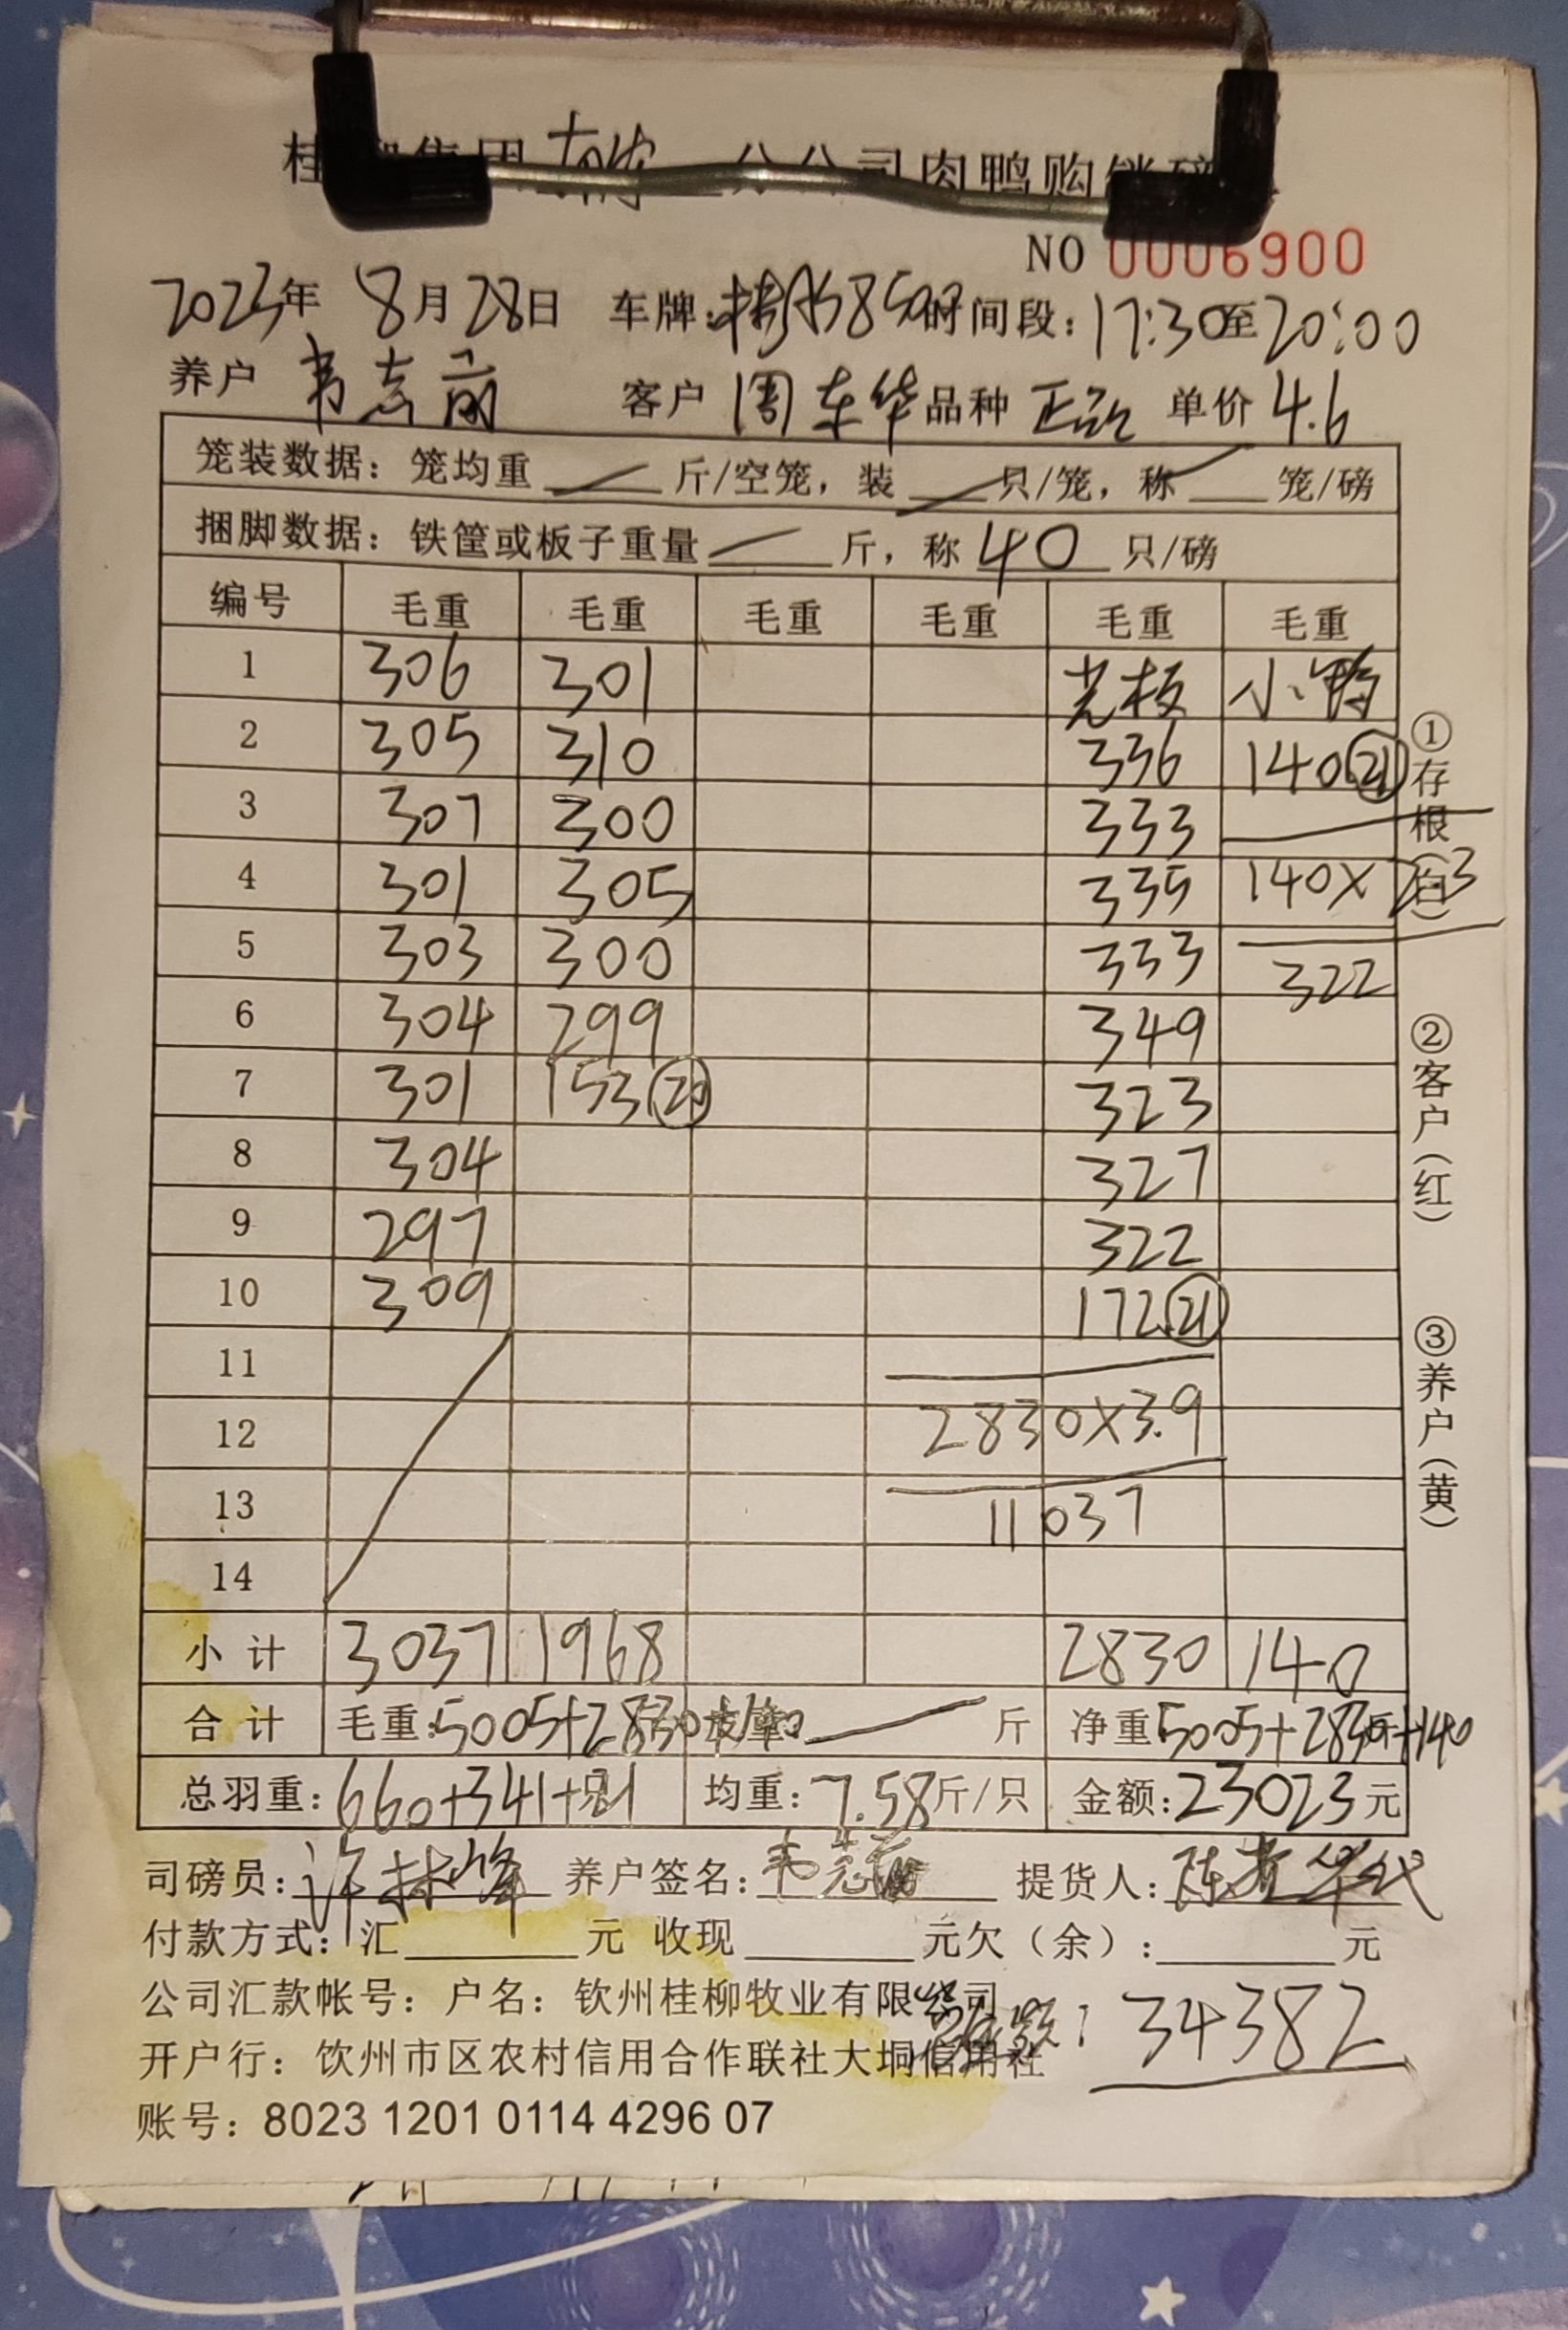 桂 集团 分公司肉鸭购销磅
NO 0006900
2023年 8月28日 车牌: 时间段:17:30至20:00
养户 韦志前 客户 周东华 品种 正品 单价 4.6
笼装数据: 笼均重 斤/空笼, 装 只/笼, 称 笼/磅
捆脚数据: 铁筐或板子重量 斤, 称 40 只/磅
编号 毛重 毛重 毛重 毛重 毛重 毛重
1 306 301 光板 小鸭
2 305 310 336 140 21
3 307 300 333
4 301 305 335 140×2.3
5 303 300 333 322
6 304 299 349
7 301 153 20 323
8 304 327
9 297 322
10 309 172 21
11
12 2830×3.9
13 11037
14
小计 3037 1968 2830 140
合计 毛重:5005+2830+140 皮重: 斤 净重5005+2830+140斤
总羽重:660+341+21只 均重:7.58斤/只 金额:23023元
司磅员:许林峰 养户签名:韦志前 提货人:
付款方式: 汇 元 收现 元欠(余): 元
公司汇款帐号: 户名: 钦州桂柳牧业有限公司
总金额: 34382
开户行: 饮州市区农村信用合作联社大垌信用社
账号: 8023 1201 0114 4296 07
①存根(白)
②客户(红)
③养户(黄)